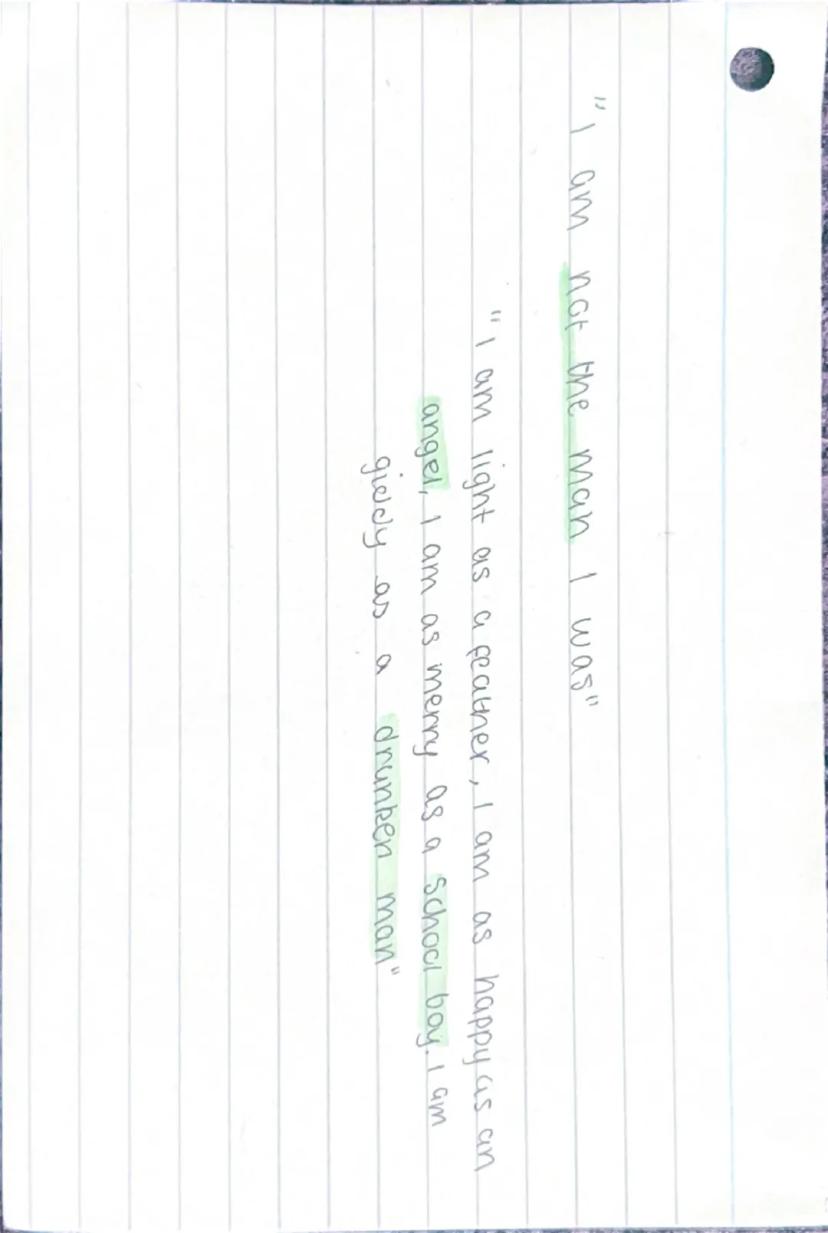 "I am not the man I was"
"I am light as a feather, I am as happy as an
angel, I am as merry as a school boy. I am
giddy as a drunken man"